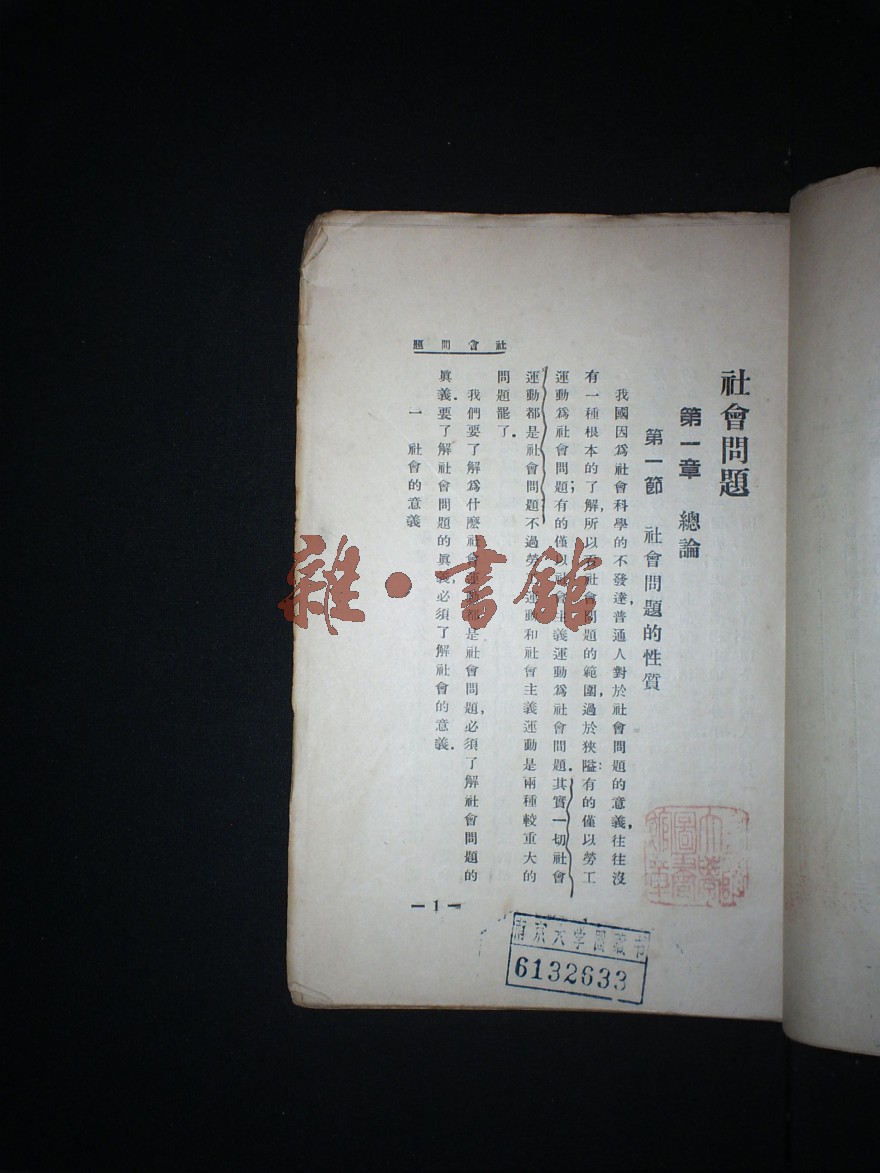 社會問題
第一章 總論
第一節 社會問題的性質
我國因爲社會科學的不發達,普通人對於社會問題的意義,往往沒
有一種根本的了解,所以 社會問題的範圍,過於狹隘:有的僅以勞工
運動爲社會問題;有的僅以社會主義運動爲社會問題.其實一切社會
運動都是社會問題不過勞 運動和社會主義運動是兩種較重大的
問題罷了.
我們要了解爲什麽社會運動都是社會問題,必須了解社會問題的
眞義.要了解社會問題的眞義,必須了解社會的意義.
一 社會的意義
社會問題
—1—
南京大学图藏书
6132633
雜·書館